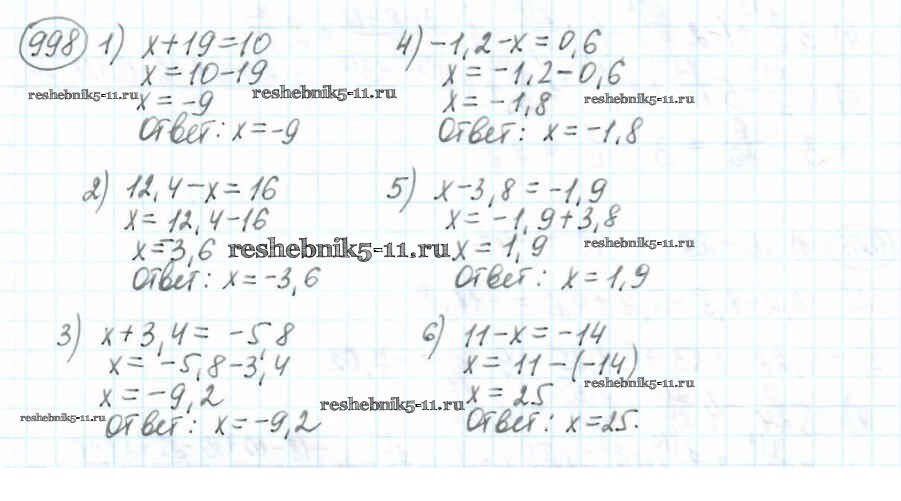 998 1) x+19=10
x=10-19
x=-9
Ответ: x=-9
2) 12,4-x=16
x=12,4-16
x=-3,6
Ответ: x=-3,6
3) x+3,4= -5,8
x= -5,8-3,4
x=-9,2
Ответ: x=-9,2
4) -1,2-x=0,6
x=-1,2-0,6
x=-1,8
Ответ: x=-1,8
5) x-3,8=-1,9
x=-1,9+3,8
x=1,9
Ответ: x=1,9
6) 11-x=-14
x=11-(-14)
x=25
Ответ: x=25.
reshebnik5-11.ru
reshebnik5-11.ru
reshebnik5-11.ru
reshebnik5-11.ru
reshebnik5-11.ru
reshebnik5-11.ru
reshebnik5-11.ru
reshebnik5-11.ru